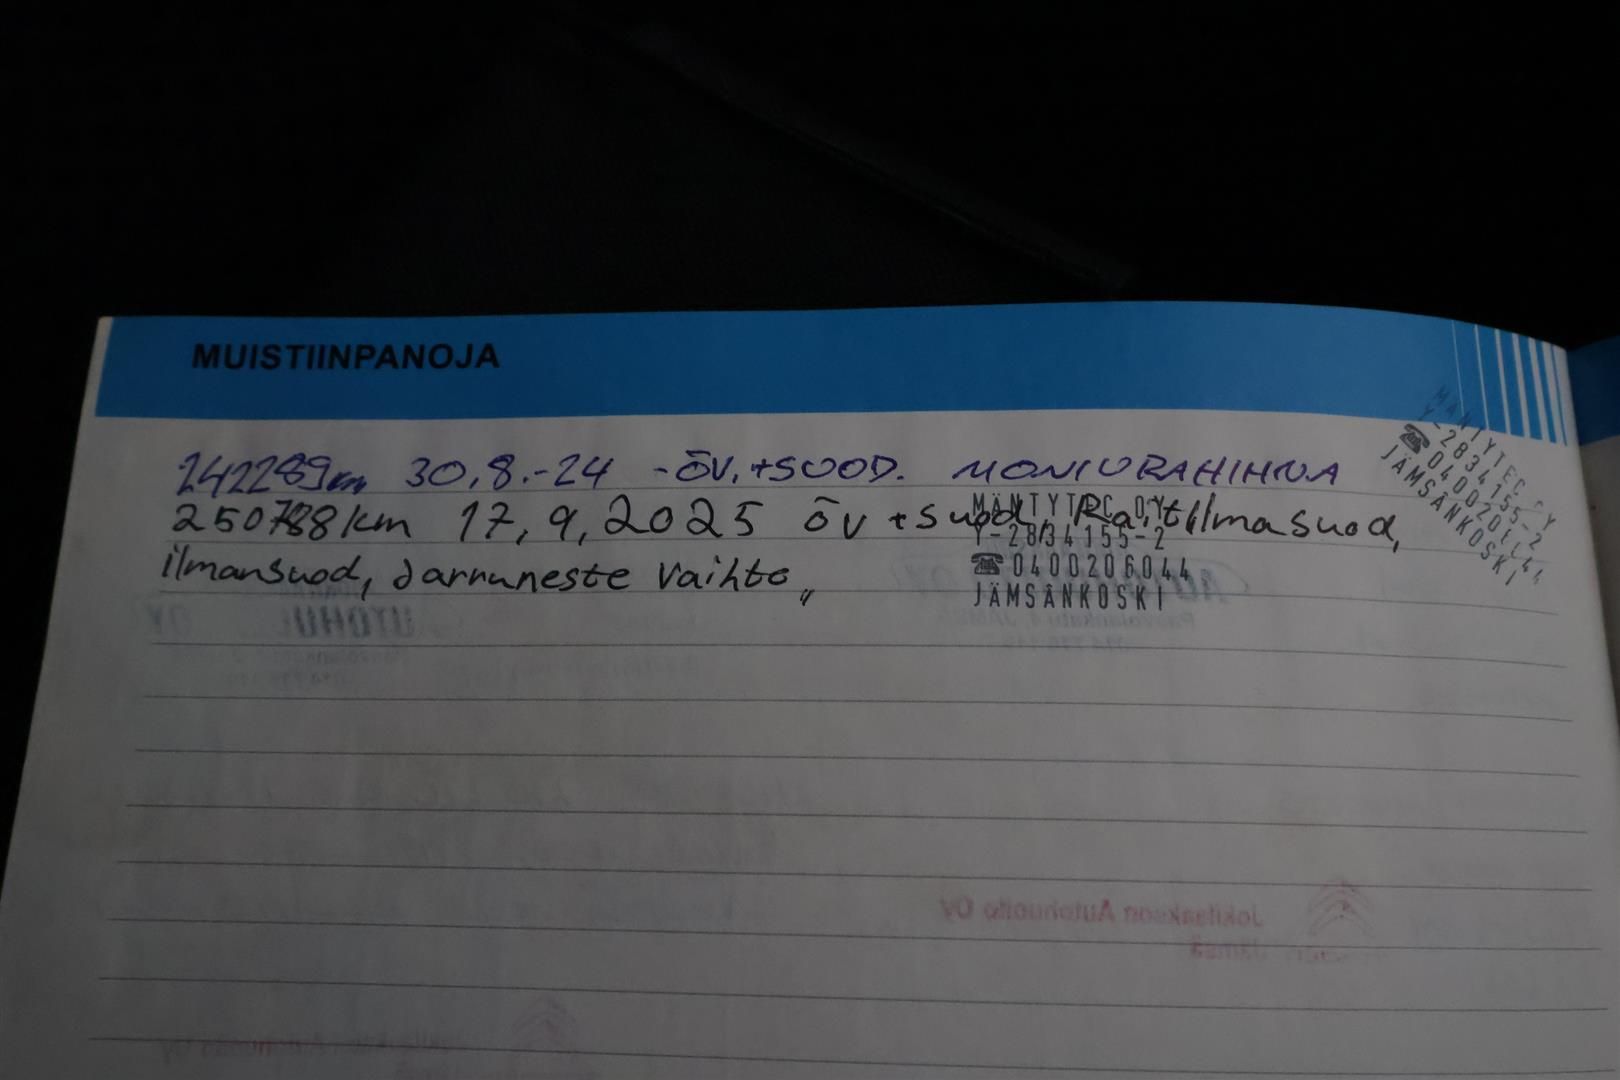 MUISTIINPANOJA
242289km 30.8.-24 -ÖV.+SUOD. MONIURAHIHNA
250788km 17,9,2025 öv+suod, Raitilmasuod,
ilmansuod, Jarruneste vaihto,,
MÄNTYTEC OY
Y-2834155-2
☎0400206044
JÄMSÄNKOSKI
MÄNTYTEC OY
Y-2834155-2
☎0400206044
JÄMSÄNKOSKI
Jokilaakson Autohuolto Oy
Jämsä